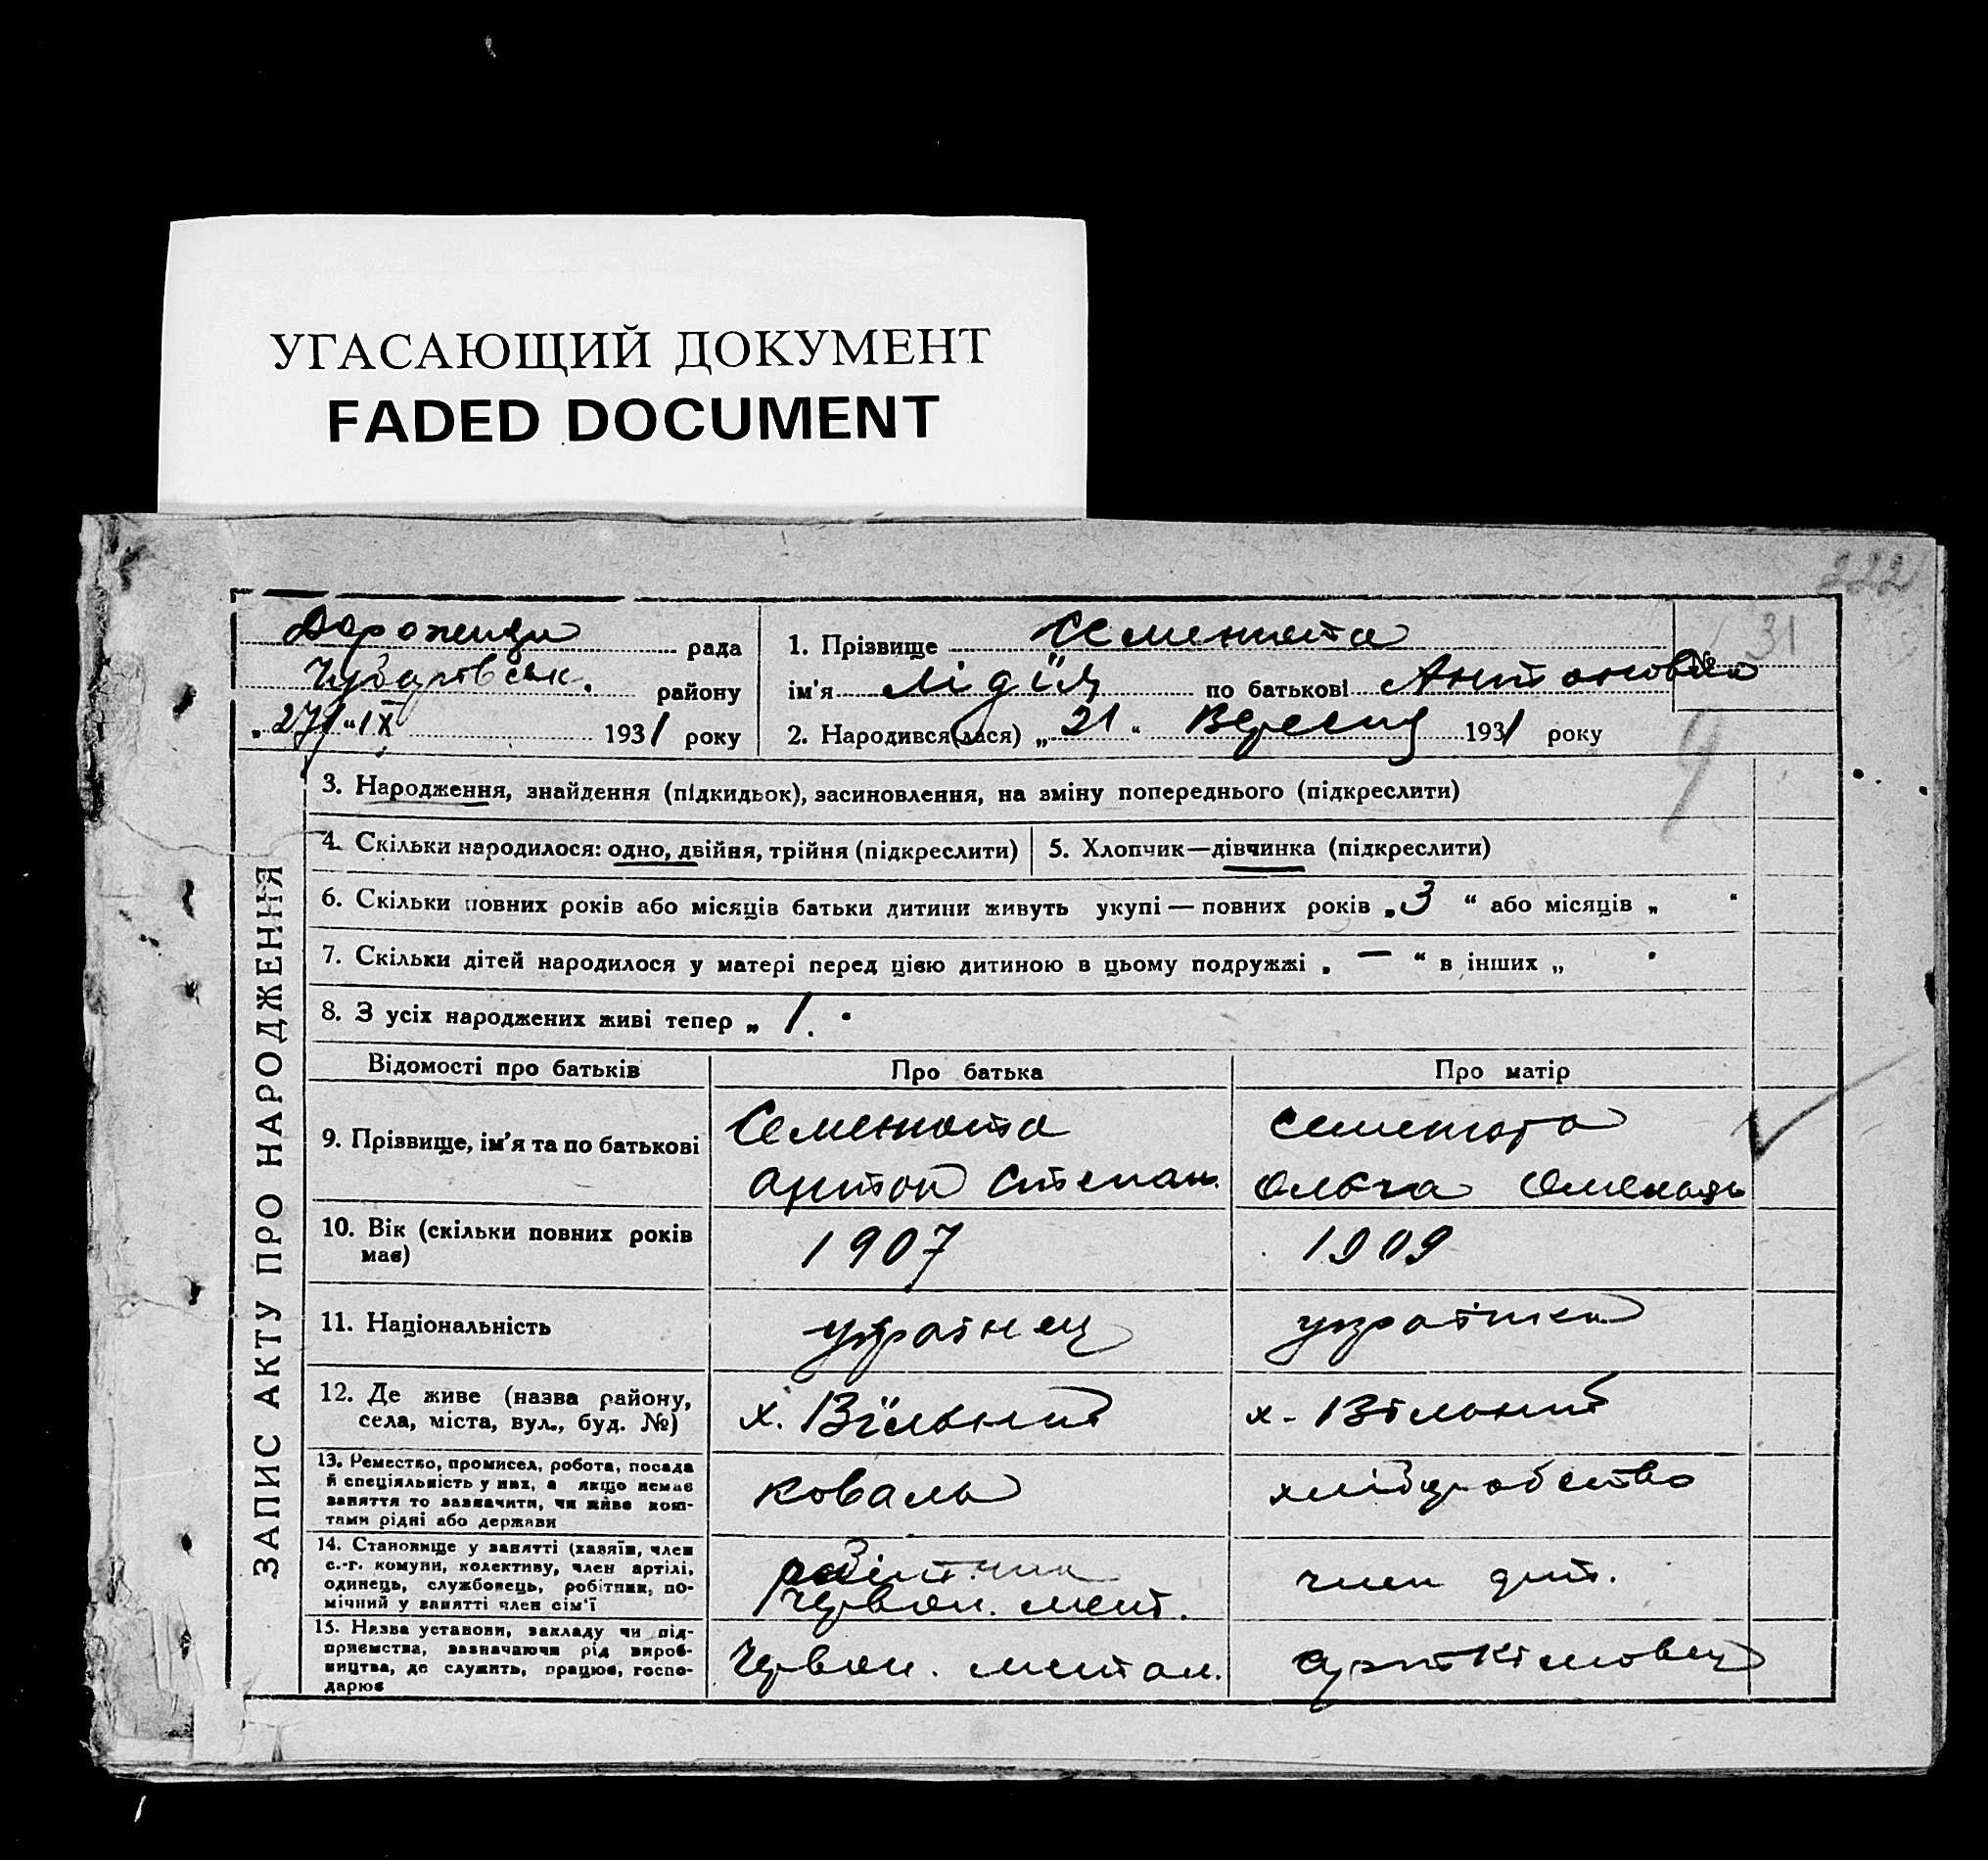 УГАСАЮЩИЙ ДОКУМЕНТ
FADED DOCUMENT
222
рада
Чубарівськ. району
„27“ IX 1931 року
1. Прізвище Семенюта
№ 31
ім'я Лідія по батькові Антоновна
2. Народився(лася) „21“ Вересня 1931 року
ЗАПИС АКТУ ПРО НАРОДЖЕННЯ
3. Народження, знайдення (підкидьок), засиновлення, на зміну попереднього (підкреслити)
4. Скільки народилося: одно, двійня, трійня (підкреслити)
5. Хлопчик—дівчинка (підкреслити)
6. Скільки повних років або місяців батьки дитини живуть укупі — повних років „3“ або місяців „ “
7. Скільки дітей народилося у матері перед цією дитиною в цьому подружжі „—“ в інших „ “
8. З усіх народжених живі тепер „1.“
Відомості про батьків
Про батька
Про матір
9. Прізвище, ім'я та по батькові
Семенюта
Антон Степан.
Семенюта
Ольга
10. Вік (скільки повних років
має)
1907
1909
11. Національність
українец
українка
12. Де живе (назва району,
села, міста, вул., буд. №)
х. Вільний
х. Вільний
13. Ремество, промисел, робота, посада
й спеціяльність у них, а якщо немає
заняття то зазначити, чи живе кош-
тами рідні або держави
коваль
хліборобство
14. Становище у занятті (хазяїн, член
с.-г. комуни, колективу, член артілі,
одинець, службовець, робітник, по-
мічний у занятті член сім'ї
робітник
Червон. мет.
член
15. Назва установи, закладу чи під-
приємства, зазначаючи рід вироб-
ництва, де служить, працює, госпо-
дарює
Червон. метал.